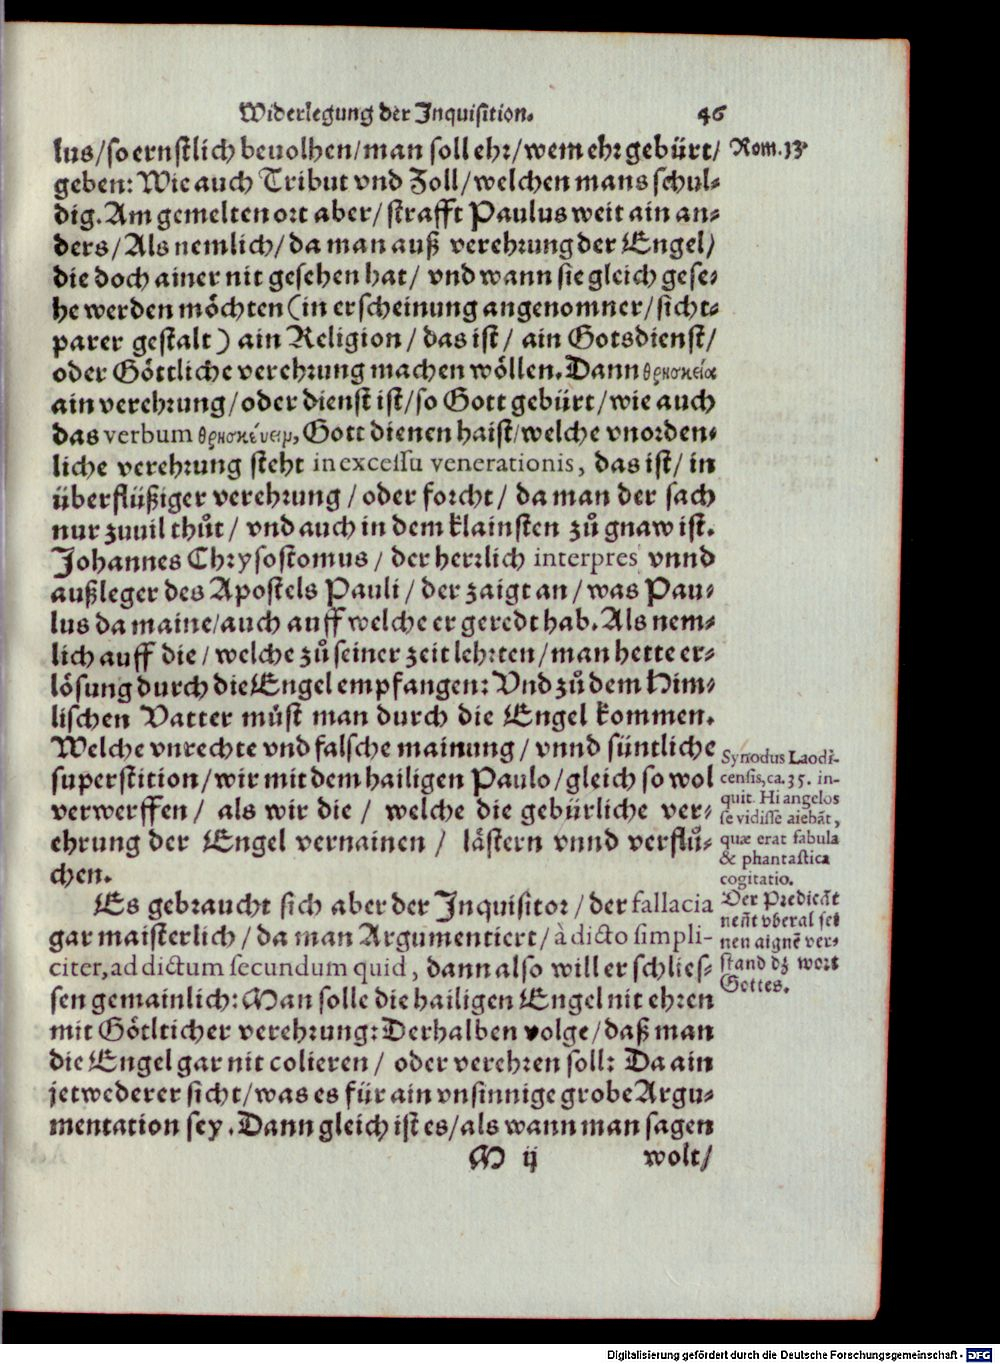 Widerlegung der Inquisition. 46
lus/ so ernstlich beuolhen/ man soll ehr/ wem ehr gebürt/
geben: Wie auch Tribut vnd Zoll/ welchen mans schul-
dig. Am gemelten ort aber/ strafft Paulus weit ain an-
ders/ Als nemlich/ da man auß verehrung der Engel/
die doch ainer nit gesehen hat/ vnd wann sie gleich gese-
he werden möchten (in erscheinung angenomner/ sicht-
parer gestalt) ain Religion/ das ist/ ain Gotsdienst/
oder Göttliche verehrung machen wöllen. Dann θρησκεία
ain verehrung/ oder dienst ist/ so Gott gebürt/ wie auch
das verbum θρησκέυειν, Gott dienen haist/ welche vnorden-
liche verehrung steht in excessu venerationis, das ist/ in
überflüßiger verehrung/ oder forcht/ da man der sach
nur zuuil thůt/ vnd auch in dem klainsten zů gnaw ist.
Johannes Chrysostomus/ der herrlich interpres vnnd
außleger des Apostels Pauli/ der zaigt an/ was Pau-
lus da maine/ auch auff welche er geredt hab. Als nem-
lich auff die/ welche zů seiner zeit lehrten/ man hette er-
lösung durch die Engel empfangen: Vnd zů dem Him-
lischen Vatter můst man durch die Engel kommen.
Welche vnrechte vnd falsche mainung/ vnnd süntliche
superstition/ wir mit dem hailigen Paulo/ gleich so wol
verwerffen/ als wir die/ welche die gebürliche ver-
ehrung der Engel vernainen/ lästern vnnd verflů-
chen.
Es gebraucht sich aber der Inquisitor/ der fallacia
gar maisterlich/ da man Argumentiert/ à dicto simpli-
citer, ad dictum secundum quid, dann also will er schlies-
sen gemainlich: Man solle die hailigen Engel nit ehren
mit Götlticher verehrung: Derhalben volge/ daß man
die Engel gar nit colieren/ oder verehren soll: Da ain
jetwederer sicht/ was es für ain vnsinnige grobe Argu-
mentation sey. Dann gleich ist es/ als wann man sagen
M ij wolt/
Rom. 13.
Synodus Laodi-
censis, ca. 35. in-
quit. Hi angelos
se vidisse aiebāt,
quæ erat fabula
& phantastica
cogitatio.
Der Predicāt
neñt vberal sei
nen aignē ver-
stand dz wort
Gottes.
Digitalisierung gefördert durch die Deutsche Forschungsgemeinschaft - DFG